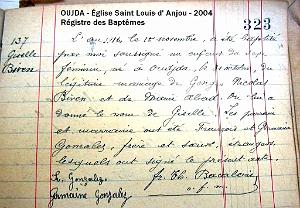 OUJDA - Église Saint Louis d' Anjou - 2004
Régistre des Baptêmes
323
137
Giselle
Biron
L'an 1914 le 15 novembre, a été baptisé
par moi soussigné un enfant du sexe
féminin, né à Oudjda, le octobre du
légitime mariage de Georges Nicolas
Biron et de Marie Abad. On lui a
donné le nom de Giselle. Les parrain
et marraine ont été François et Germaine
Gonzalez, frère et sœur, espagnols
lesquels ont signé le présent acte.
Gonzalez fr. Th.
Germaine Gonzalez o. f. m.